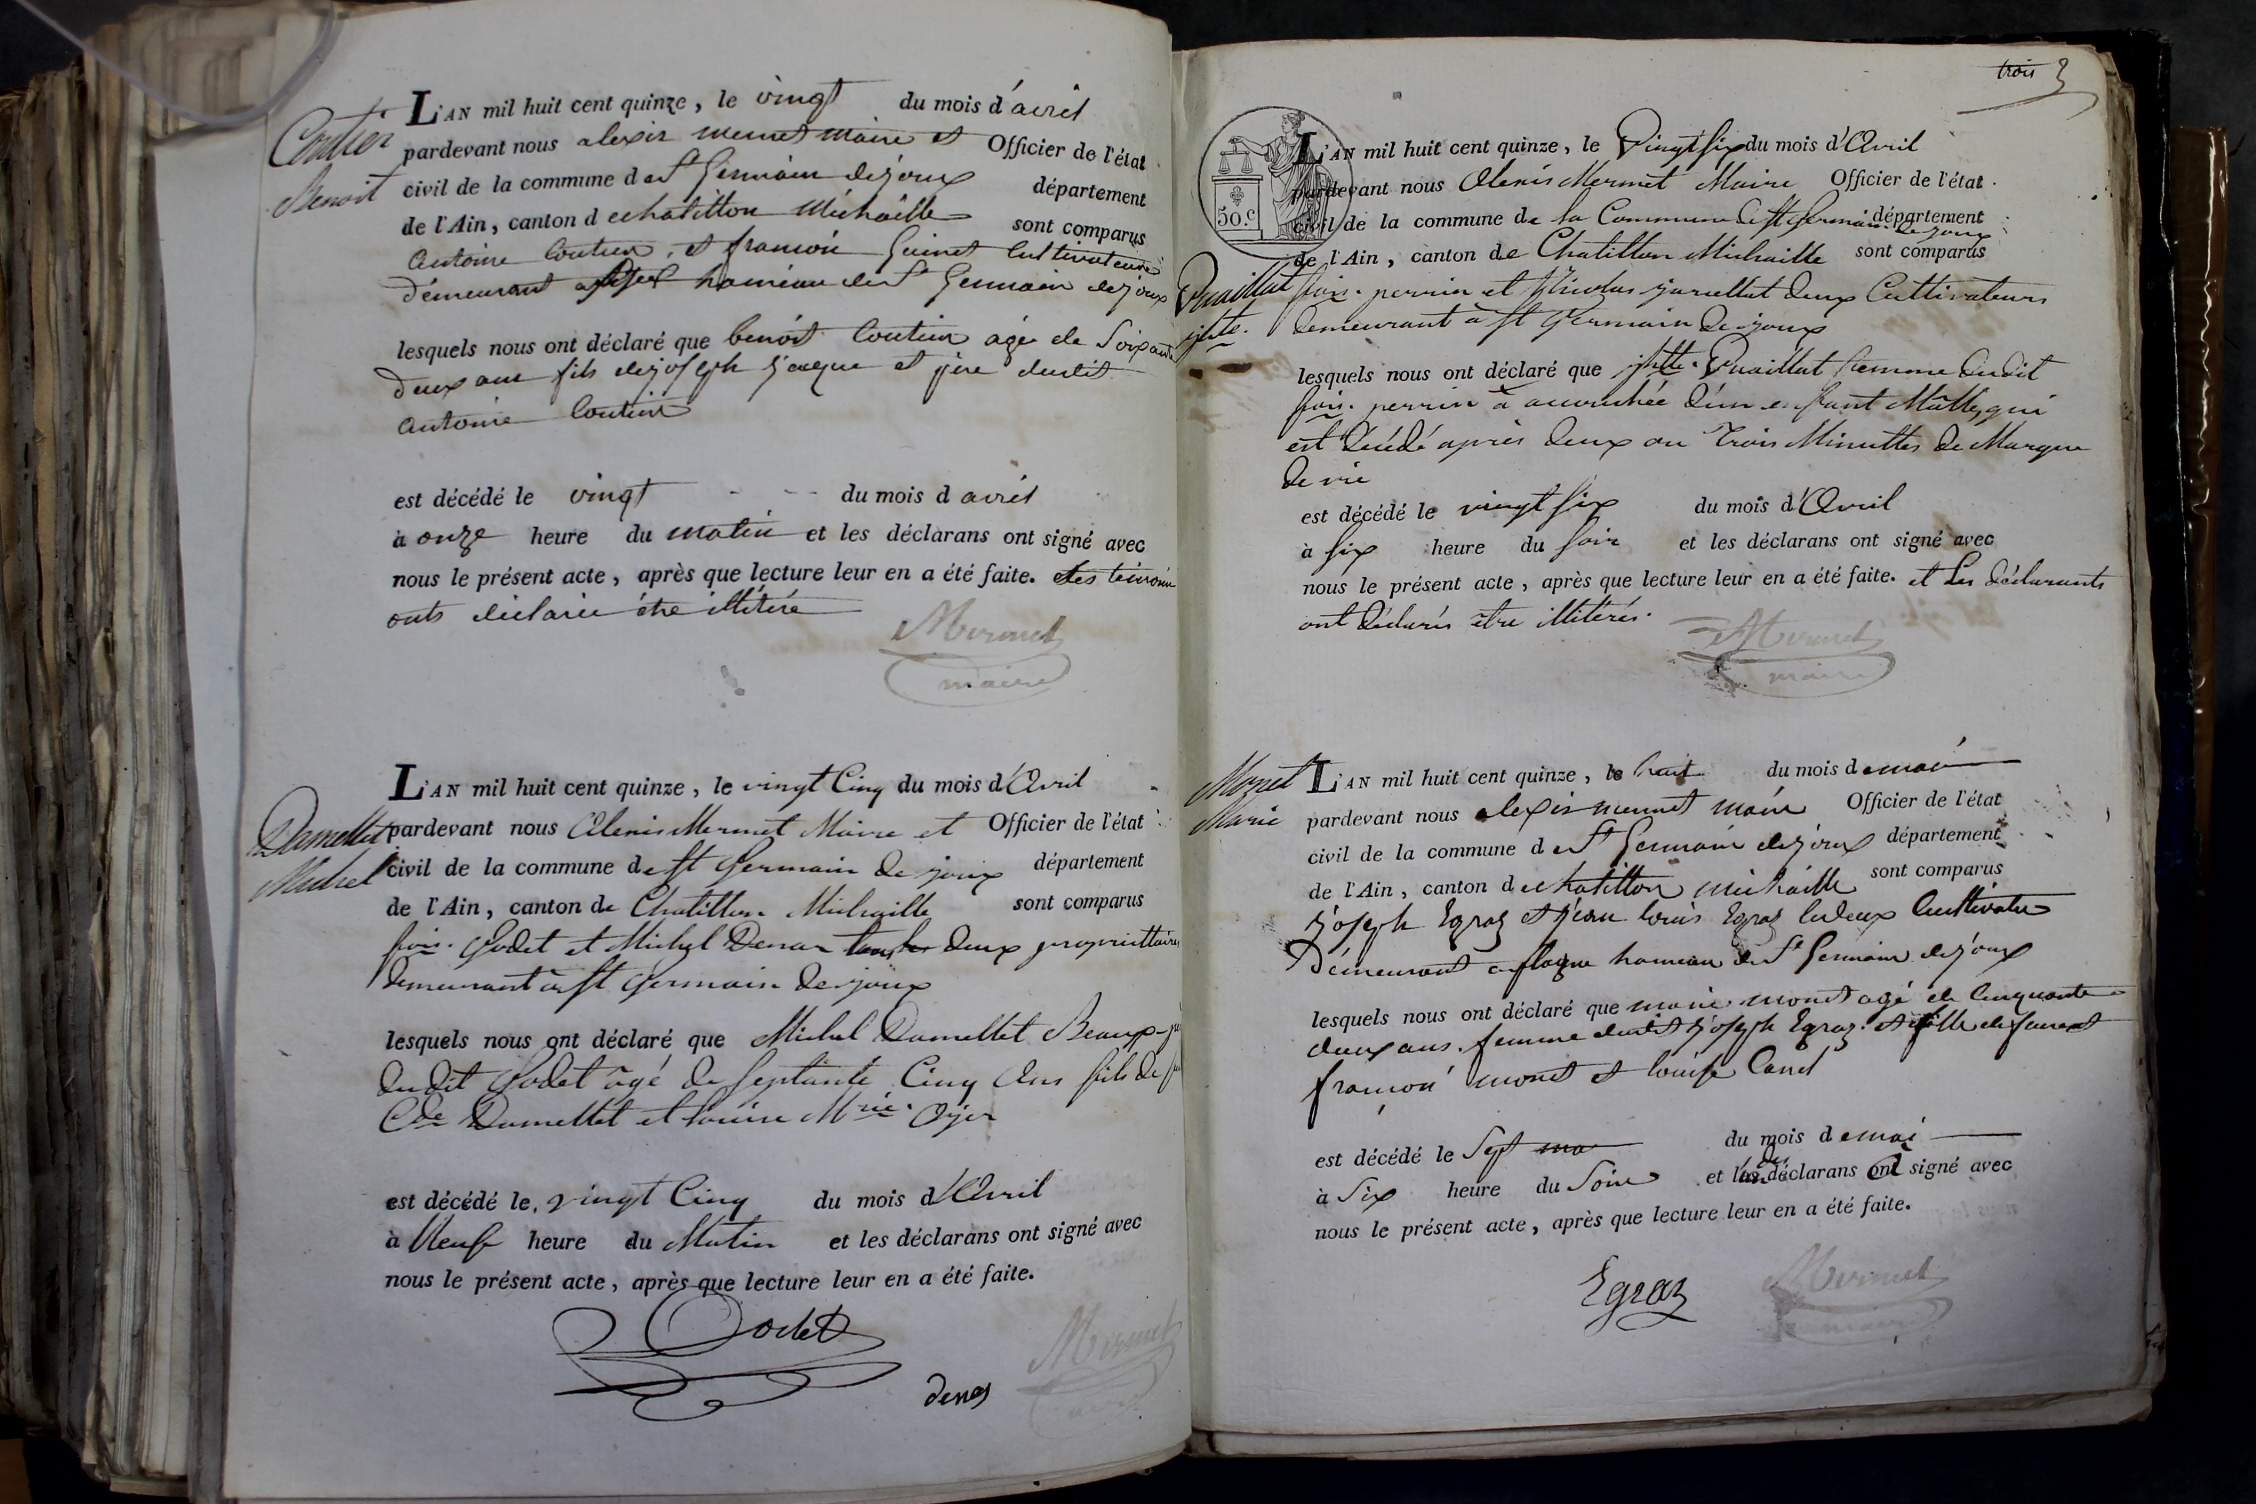 Coutier
Benoit
L'AN mil huit cent quinze, le vingt du mois d'avril
pardevant nous alexis mermet maire et Officier de l'état
civil de la commune de St Germain dejoux département
de l'Ain, canton d echatillon Michaille sont comparus
antoine Coutier, et françois Guinet Cultivateurs
démeurant hameau de St Germain dejoux
lesquels nous ont déclaré que benoit Coutier agé de Soixante
deux ans fils de joseph jacque et père dudit
antoine Coutier
est décédé le vingt - - - du mois d avril
à onze heure du matin et les déclarans ont signé avec
nous le présent acte, après que lecture leur en a été faite. Les témoins
onts déclarée étre illitéré
Mermet
maire
Damettet
Michel
L'AN mil huit cent quinze, le vingt Cinq du mois d'Avril
pardevant nous Alexis Mermet Maire et Officier de l'état
civil de la commune de St Germain de joux département
de l'Ain, canton de Chatillon Michaille sont comparus
fois. Godet et Michel deux propriettaires
demeurant à St Germain de joux
lesquels nous ont déclaré que Michel Damettet Beaux-
dudit Godet âgé de Septante Cinq Ans fils de
Cde Damettet et Mrie.
est décédé le, vingt Cinq du mois d'Avril
à Neuf heure du Matin et les déclarans ont signé avec
nous le présent acte, après que lecture leur en a été faite.
Godet
Mermet
maire
trois 3
50.c
L'AN mil huit cent quinze, le Vingt six du mois d'Avril
pardevant nous Alexis Mermet Maire Officier de l'état
civil de la commune de la Commune de St Germain de joux département
de l'Ain, canton de Chatillon Michaille sont comparus
Vuaillat
jhte.
fois. perrin et Nicolas deux Cultivateurs
demeurant à St Germain de joux
lesquels nous ont déclaré que jhtte. Vuaillat femme dudit
fois. perrin à accouchée d'un enfant Mâlle, qui
est décédé après deux ou Trois Minuttes de Marque
de vie
est décédé le vingt six du mois d'Avril
à six heure du soir et les déclarans ont signé avec
nous le présent acte, après que lecture leur en a été faite. et Les déclarants
ont déclarés être illitérés.
Mermet
maire
Monet
Marie
L'AN mil huit cent quinze, le huit du mois d emai
pardevant nous alexis mermet maire Officier de l'état
civil de la commune d e St Germain dejoux département
de l'Ain, canton d echatillon michaille sont comparus
joseph Egraz et jean louis Egraz les deux Cultivateur
Démeurant hameau de St Germain dejoux
lesquels nous ont déclaré que marie monet agé de Cinquante
deux ans. femme dudit joseph Egraz. et fille de
françois monet et louise
est décédé le Sept ma du mois d emai
à Six heure du Soir et un des déclarans a signé avec
nous le présent acte, après que lecture leur en a été faite.
Egraz
Mermet
maire